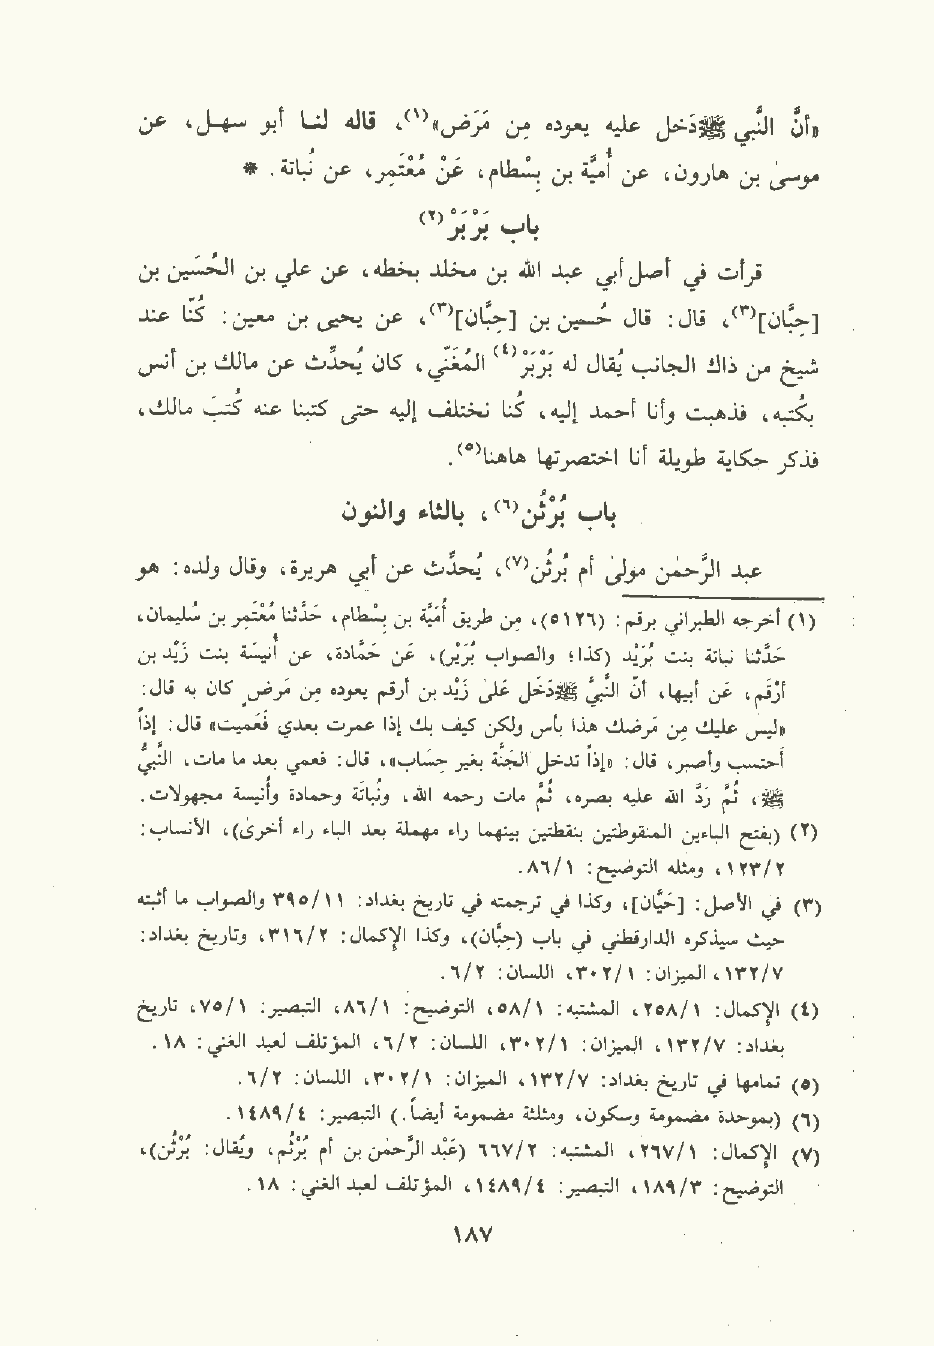 «أنَّ النَّبي ﷺ دَخل عليه يعوده مِن مَرَض»(١)، قاله لنا أبو سهل، عن
موسىٰ بن هارون، عن أُميَّة بن بِسْطام، عَنْ مُعْتَمِر، عن نُباتة. *
باب بَرْبَرْ(٢)
قرأت في أصل أبي عبد الله بن مخلد بخطه، عن علي بن الحُسَين بن
[حِبَّان](٣)، قال: قال حُسين بن [حِبَّان](٣)، عن يحيىٰ بن معين: كُنَّا عند
شيخ من ذاك الجانب يُقال له بَرْبَرْ(٤) المُغَنِّي، كان يُحدِّث عن مالك بن أنس
بكُتبه، فذهبت وأنا أحمد إليه، كُنا نختلف إليه حتى كتبنا عنه كُتَبَ مالك،
فذكر حكاية طويلة أنا اختصرتها هاهنا(٥).
باب بُرْثُن(٦)، بالثاء والنون
عبد الرَّحمٰن مولىٰ أم بُرْثُن(٧)، يُحدِّث عن أبي هريرة، وقال ولده: هو
(١) أخرجه الطبراني برقم: (٥١٢٦)، من طريق أُمَيَّة بن بِسْطام، حَدَّثنا مُعْتَمِر بن سُليمان،
حَدَّثنا نباتة بنت بُرَيْد (كذا؛ والصواب بُرَيْر)، عَن حَمَّادة، عن أُنَيسَة بنت زَيْد بن
أرْقَم، عَن أبيها، أنَّ النَّبيَّ ﷺ دَخَلَ عَلىٰ زَيْد بن أرقم يعوده مِن مَرَض كان به قال:
«ليس عليك مِن مَرَضك هذا بأس ولكن كيف بك إذا عمرت بعدي فَعَمِيت» قال: إذاً
أحتسب وأصبر، قال: «إذاً تدخل الجَنة بغير حِساب»، قال: فعمي بعد ما مات، النَّبيُّ
ﷺ، ثُمَّ رَدَّ الله عليه بصره، ثُمَّ مات رحمه الله، ونُباتَة وحمادة وأنيسة مجهولات.
(٢) (بفتح الباءين المنقوطتين بنقطتين بينهما راء مهملة بعد الباء راء أخرىٰ)، الأنساب:
٢/١٢٣، ومثله التوضيح: ١/٨٦.
(٣) في الأصل: [حَيَّان]، وكذا في ترجمته في تاريخ بغداد: ١١/٣٩٥ والصواب ما أثبته
حيث سيذكره الدارقطني في باب (حِبَّان)، وكذا الإكمال: ٢/٣١٦، وتاريخ بغداد:
٧/١٣٢، الميزان: ١/٣٠٢، اللسان: ٢/٦.
(٤) الإكمال: ١/٢٥٨، المشتبه: ١/٥٨، التوضيح: ١/٨٦، التبصير: ١/٧٥، تاريخ
بغداد: ٧/١٣٢، الميزان: ١/٣٠٢، اللسان: ٢/٦، المؤتلف لعبد الغني: ١٨.
(٥) تمامها في تاريخ بغداد: ٧/١٣٢، الميزان: ١/٣٠٢، اللسان: ٢/٦.
(٦) (بموحدة مضمومة وسكون، ومثلثة مضمومة أيضاً.) التبصير: ٤/١٤٨٩.
(٧) الإكمال: ١/٢٦٧، المشتبه: ٢/٦٦٧ (عَبْد الرَّحمٰن بن أم بُرْثُم، ويُقال: بُرْثُن)،
التوضيح: ٣/١٨٩، التبصير: ٤/١٤٨٩، المؤتلف لعبد الغني: ١٨.
١٨٧